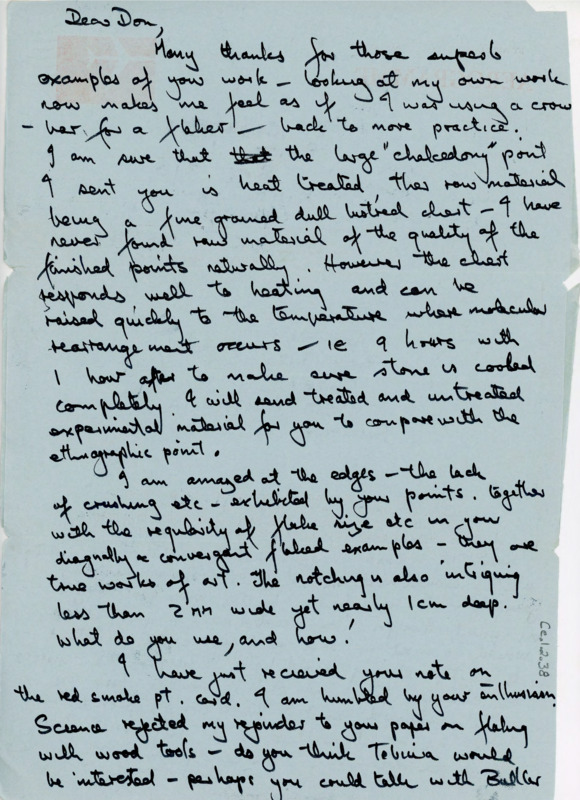 Dear Don,
Many thanks for those superb
examples of your work – looking at my own work
now makes me feel as if I was using a crow
- bar for a flaker – back to more practice.
I am sure that that the large "chalcedony" point
I sent you is heat treated ther raw material
being a fine grained dull lustred chert – I have
never found raw material of the quality of the
finished points naturally. However the chert
responds well to heating and can be
raised quickly to the temperature where molecular
rearrangement occurs – ie 9 hours with
1 hour after to make sure stone is cooked
completely. I will send treated and untreated
experimental material for you to compare with the
ethnographic point.
I am amazed at the edges – the lack
of crushing etc – exhibited by your points. together
with the regularity of flake size etc in your
diagnally & convergant flaked examples – they are
true works of art. The notching is also intriging
less than 2mm wide yet nearly 1cm deep.
What do you use, and how!
I have just recieved your note on
the red smoke pt. card. I am humbled by your enthusiasm.
Science rejected my rejoinder to your paper on flaking
with wood tools – do you think Tebiwa would
be interested – perhaps you could talk with Butler
Ce.12.38